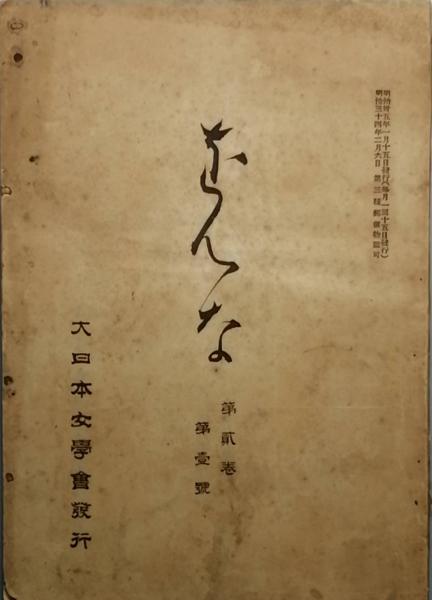 明治卅五年一月十五日發行(每月一回十五日發行)
明治三十四年二月六日第三種郵便物認可
をんな
第貳卷
第壹號
大日本女學會發行